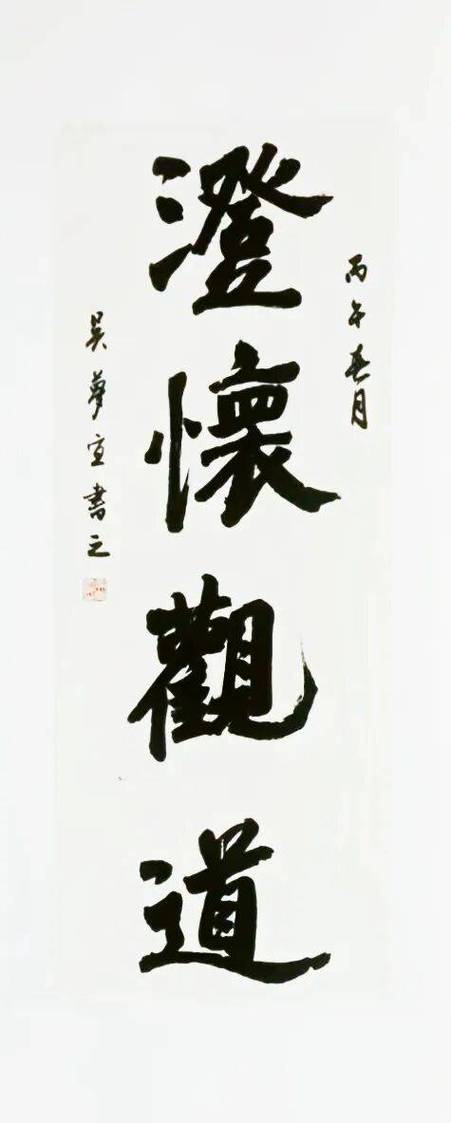 丙午春月
澄懷觀道
吴夢宣書之